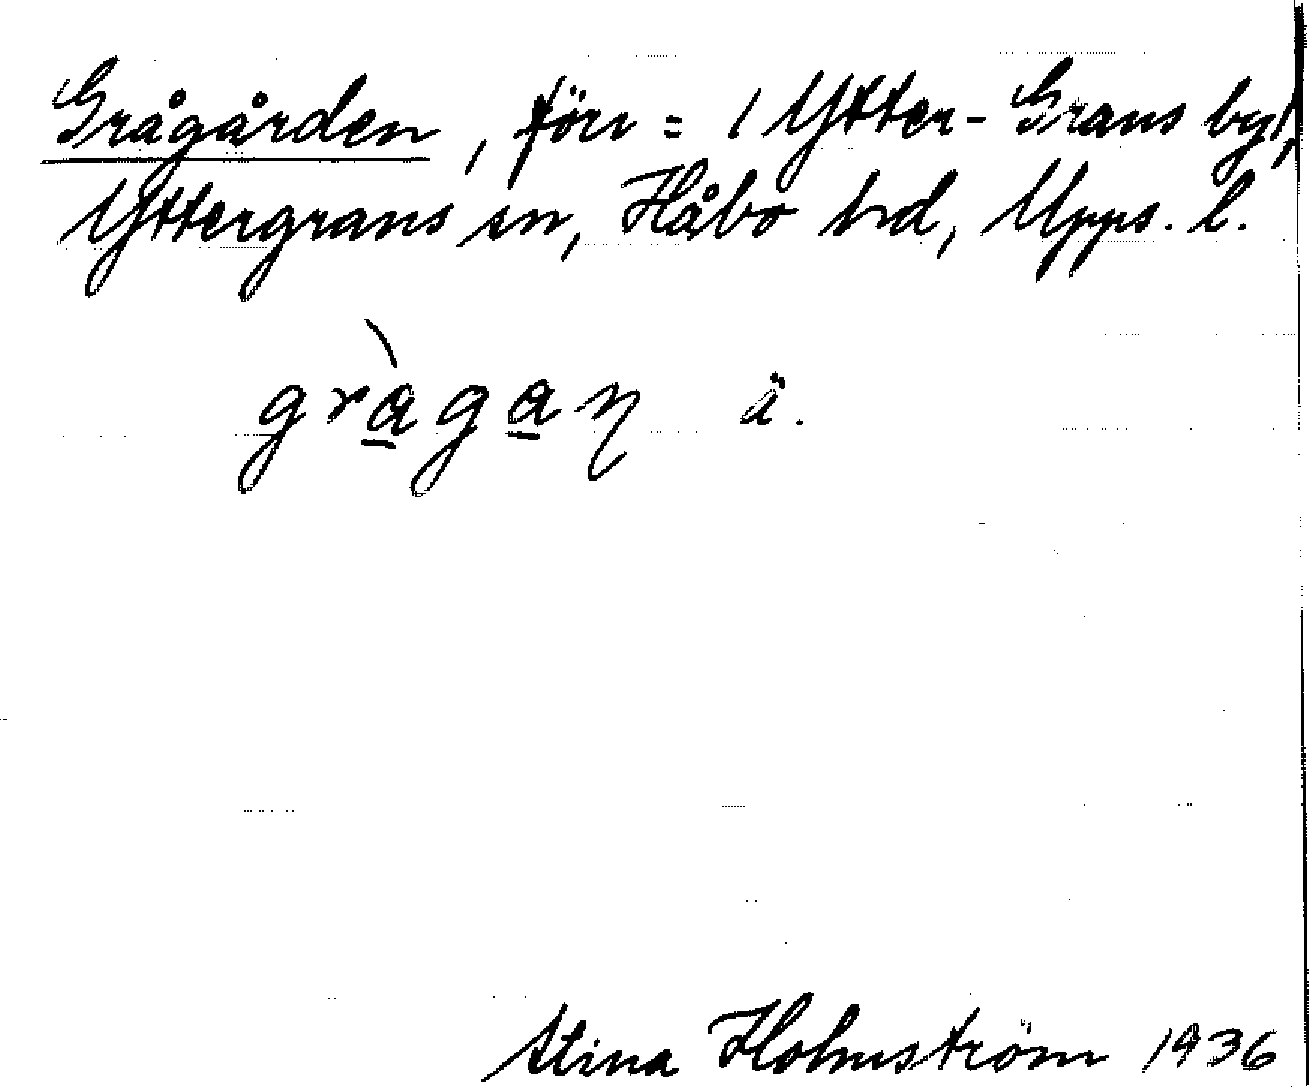 Grågården, förr = 1 Ytter-Grans by,
Yttergrans sn, Håbo hd, Upps. l.
gràgaɳ ä.
Stina Holmström 1936